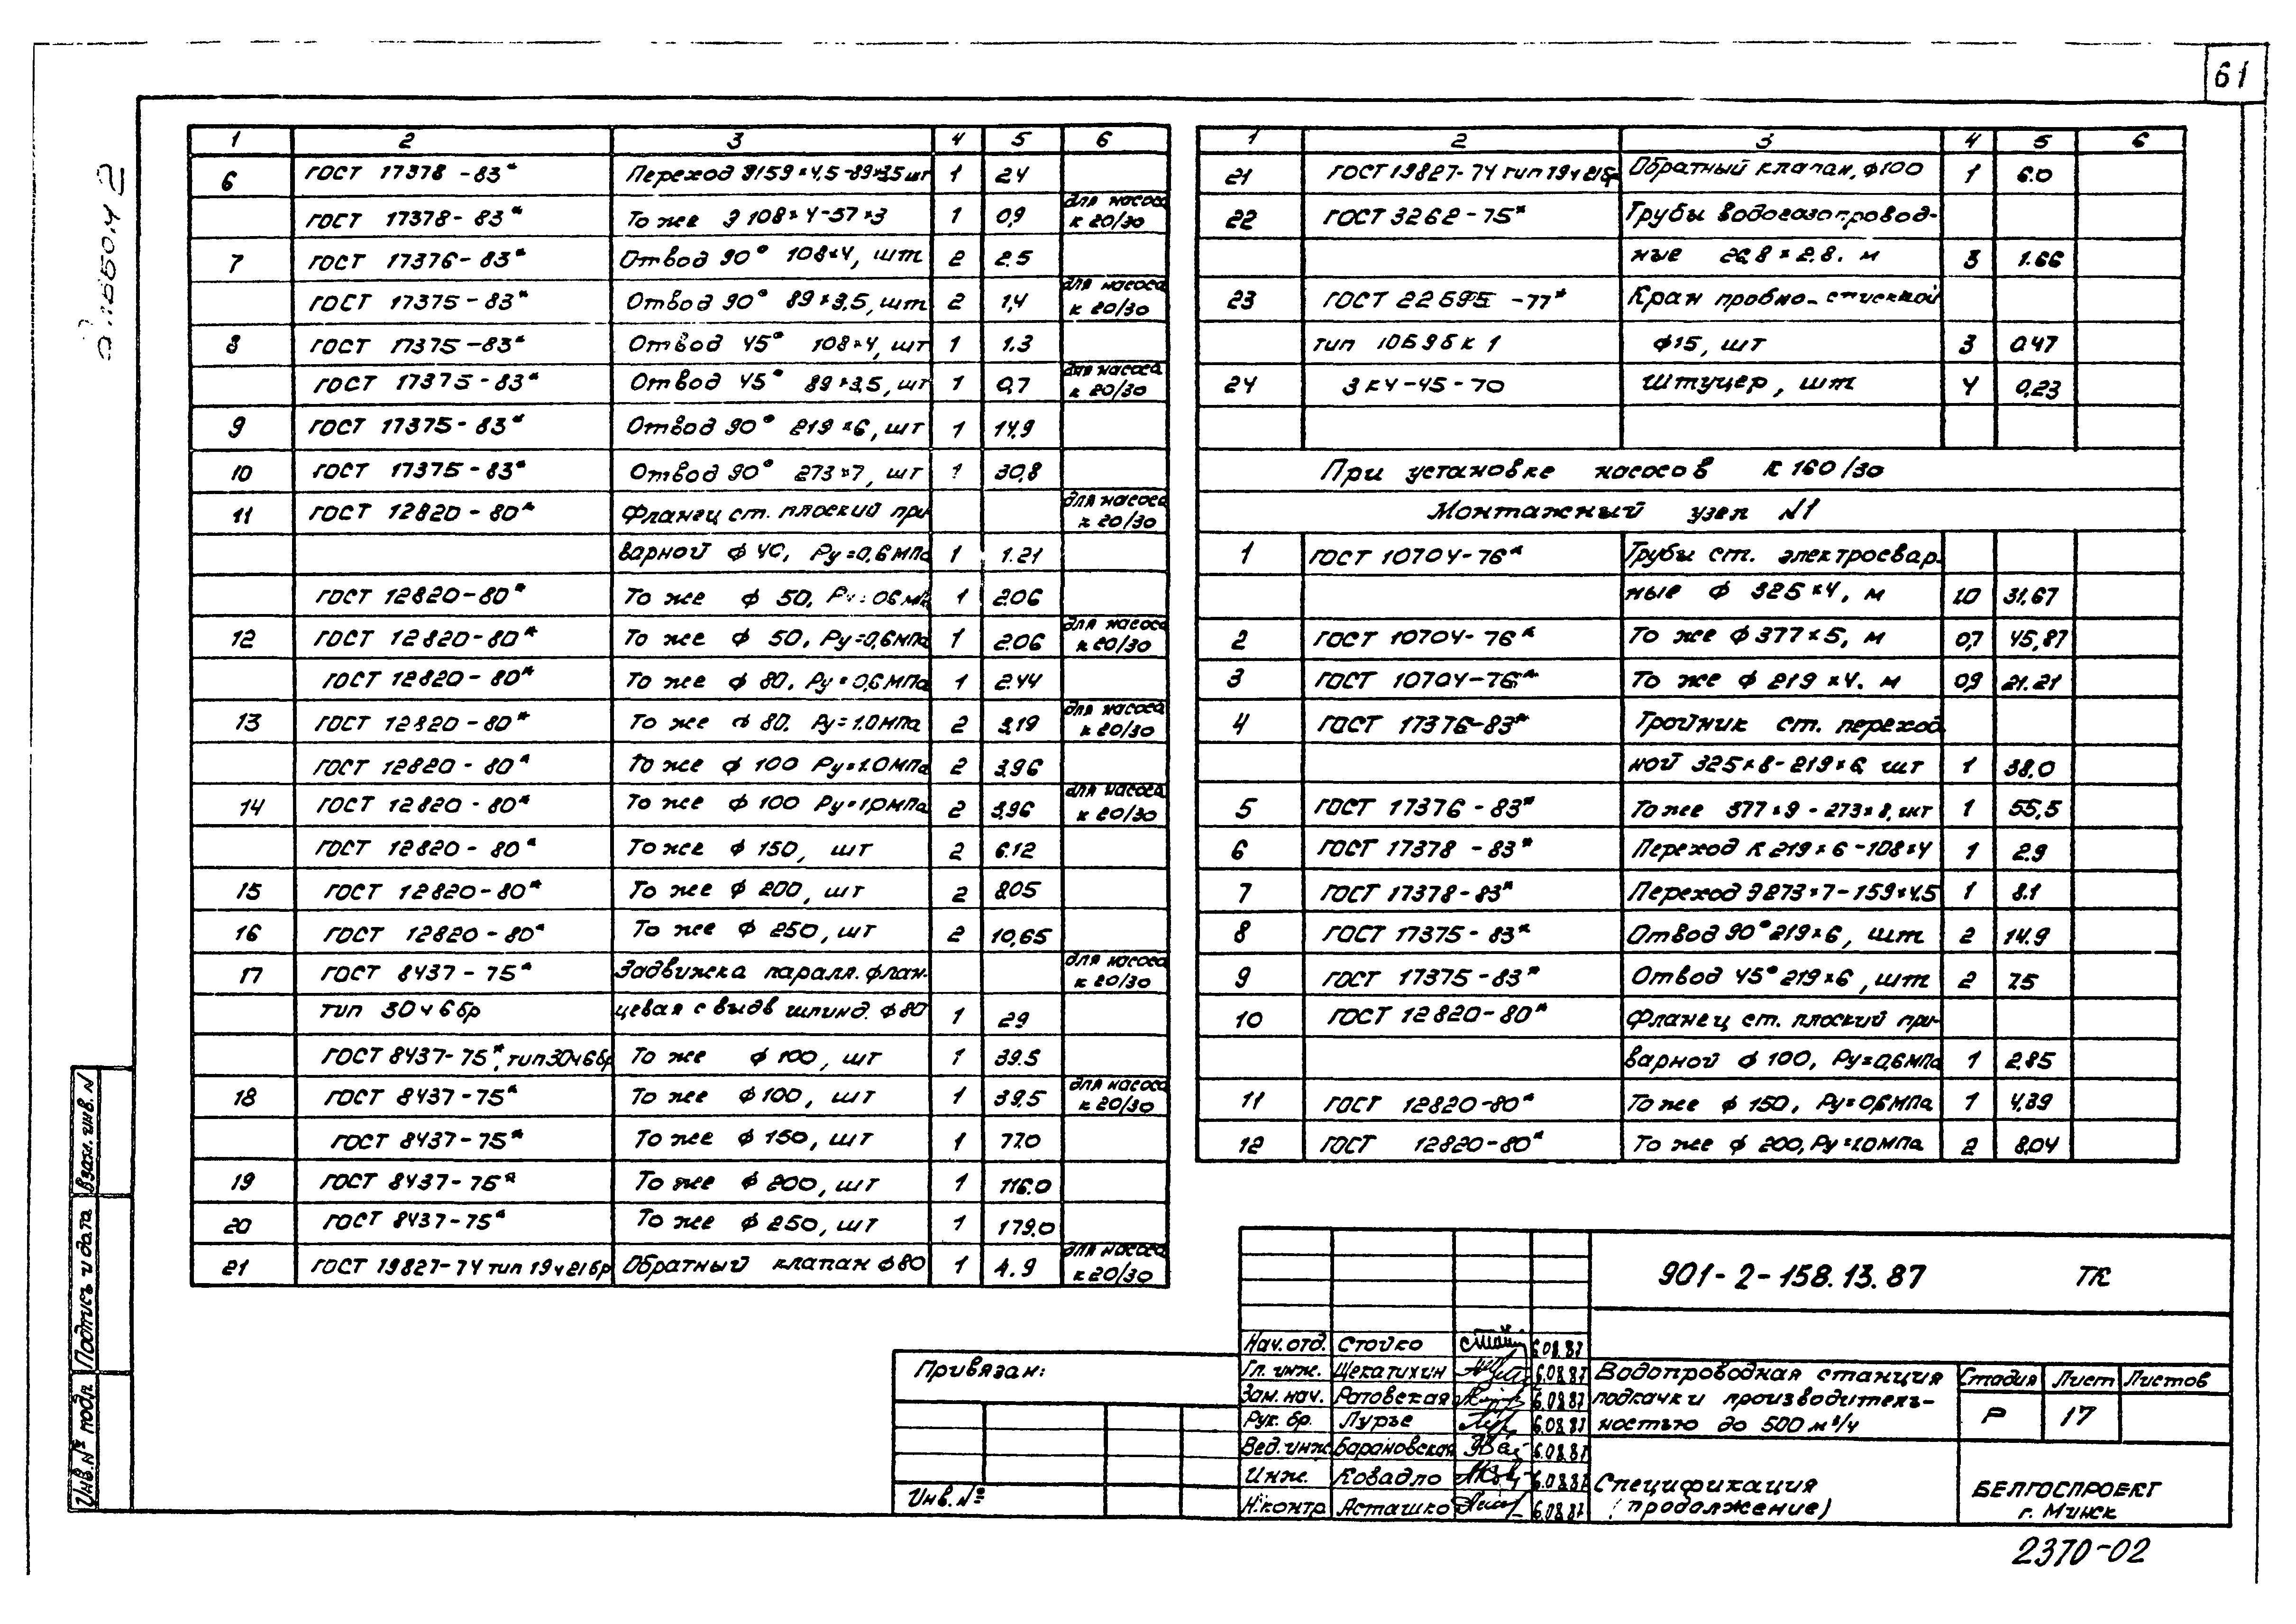 61
Альбом 2
1 2 3 4 5 6
6 ГОСТ 17378 - 83* Переход Э159×4,5-89×3,5 шт 1 2.4
ГОСТ 17378 - 83* То же Э 108×4-57×3 1 0,9 для насоса к 20/30
7 ГОСТ 17376 - 83* Отвод 90° 108×4, шт 2 2.5
ГОСТ 17375 - 83* Отвод 90° 89×3,5, шт 2 1,4 для насоса к 20/30
8 ГОСТ 17375 - 83* Отвод 45° 108×4, шт 1 1.3
ГОСТ 17375 - 83* Отвод 45° 89×3,5, шт 1 0,7 для насоса к 20/30
9 ГОСТ 17375 - 83* Отвод 90° 219×6, шт 1 14,9
10 ГОСТ 17375 - 83* Отвод 90° 273×7, шт 1 30,8
11 ГОСТ 12820 - 80* Фланец ст. плоский при для насоса к 20/30
варной ф 40, Ру=0,6 МПа 1 1.21
ГОСТ 12820 - 80* То же ф 50, Ру=0.6 МПа 1 2.06
12 ГОСТ 12820 - 80* То же ф 50, Ру=0,6 МПа 1 2.06 для насоса к 20/30
ГОСТ 12820 - 80* То же ф 80, Ру=0,6 МПа 1 2.44
13 ГОСТ 12820 - 80* То же ф 80, Ру=1.0 МПа 2 3,19 для насоса к 20/30
ГОСТ 12820 - 80* То же ф 100 Ру=1.0 МПа 2 3,96
14 ГОСТ 12820 - 80* То же ф 100 Ру=1,0 МПа 2 3,96 для насоса к 20/30
ГОСТ 12820 - 80* То же ф 150, шт 2 6.12
15 ГОСТ 12820 - 80* То же ф 200, шт 2 8.05
16 ГОСТ 12820 - 80* То же ф 250, шт 2 10,65
17 ГОСТ 8437 - 75* Задвижка паралл. флан- для насоса к 20/30
тип 30ч6бр цевая с выдв шпинд. ф 80 1 29
ГОСТ 8437-75*, тип 30ч6бр То же ф 100, шт 1 39.5
18 ГОСТ 8437-75* То же ф 100, шт 1 39.5 для насоса к 20/30
ГОСТ 8437-75* То же ф 150, шт 1 77.0
19 ГОСТ 8437-75* То же ф 200, шт 1 116.0
20 ГОСТ 8437-75* То же ф 250, шт 1 179.0
21 ГОСТ 19827-74 тип 19ч21бр Обратный клапан ф 80 1 4.9 для насоса к 20/30
1 2 3 4 5 6
21 ГОСТ 19827-74 тип 19ч21бр Обратный клапан, ф100 1 6.0
22 ГОСТ 3262-75* Трубы водогазопровод-
ные 2,8. м 3 1.66
23 ГОСТ 22595 -77* Кран пробно-спускной
тип 10Б9бк1 ф15, шт 3 0.47
24 3к4-45-70 Штуцер, шт 4 0,23
При установке насосов К 160/30
Монтажный узел N1
1 ГОСТ 10704-76* Трубы ст. электросвар-
ные ф 325×4, м 1.0 31.67
2 ГОСТ 10704-76* То же ф 377×5, м 0,7 45,87
3 ГОСТ 10704-76* То же ф 219×4. м 0,9 21.21
4 ГОСТ 17376-83* Тройник ст. переход
ной 325×8-219×6 шт 1 38.0
5 ГОСТ 17376 - 83* То же 377×9 - 273×8, шт 1 55,5
6 ГОСТ 17378 - 83* Переход К 219×6-108×4 1 2.9
7 ГОСТ 17378-83* Переход Э 273×7-159×4.5 1 8.1
8 ГОСТ 17375-83* Отвод 90° 219×6, шт 2 14.9
9 ГОСТ 17375-83* Отвод 45° 219×6, шт 2 7.5
10 ГОСТ 12820-80* Фланец ст. плоский при-
варной ф 100, Ру=0,6 МПа 1 2.85
11 ГОСТ 12820-80* То же ф 150, Ру=0,6 МПа 1 4.39
12 ГОСТ 12820-80* То же ф 200, Ру=1.0 МПа 2 8,04
Взам. инв. N
Подпись и дата
Инв. № подл.
Привязан:
Инв. №
901-2-158.13.87 ТК
Нач. отд. Стойко 6.08.87
Гл. инж. Щекатихин 6.08.87
Зам. нач. Ратовская 6.08.87
Рук. бр. Лурье 6.08.87
Вед. инж. Барановская 6.08.87
Инж. Ковадло 6.08.87
Н. контр. Асташко 6.08.87
Водопроводная станция
подкачки производитель-
ностью до 500 м³/ч
Стадия Лист Листов
Р 17
Спецификация
(продолжение)
БЕЛГОСПРОЕКТ
г. Минск
2370-02